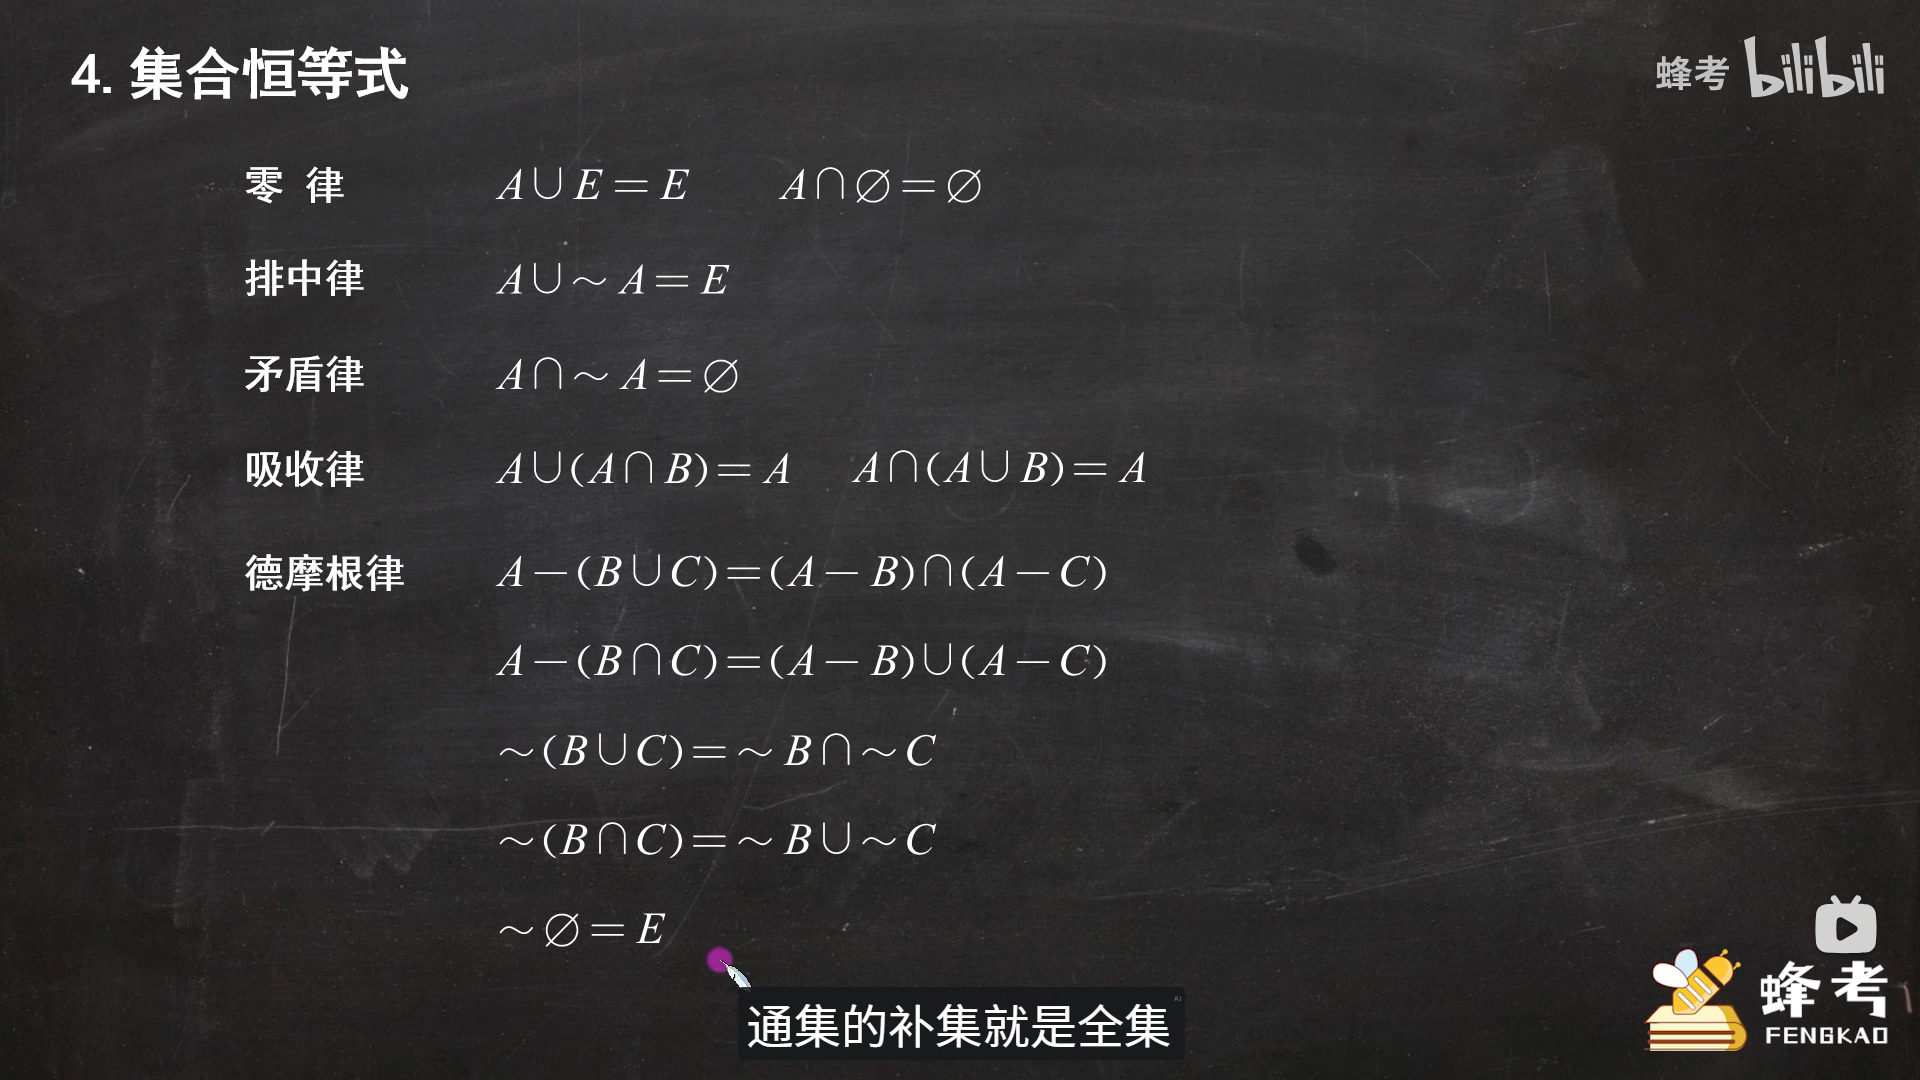 4. 集合恒等式
蜂考 bilibili
零 律 A∪E=E A∩∅=∅
排中律 A∪~A=E
矛盾律 A∩~A=∅
吸收律 A∪(A∩B)=A A∩(A∪B)=A
德摩根律 A-(B∪C)=(A-B)∩(A-C)
A-(B∩C)=(A-B)∪(A-C)
~(B∪C)=~B∩~C
~(B∩C)=~B∪~C
~∅=E
通集的补集就是全集
AI
蜂考
FENGKAO